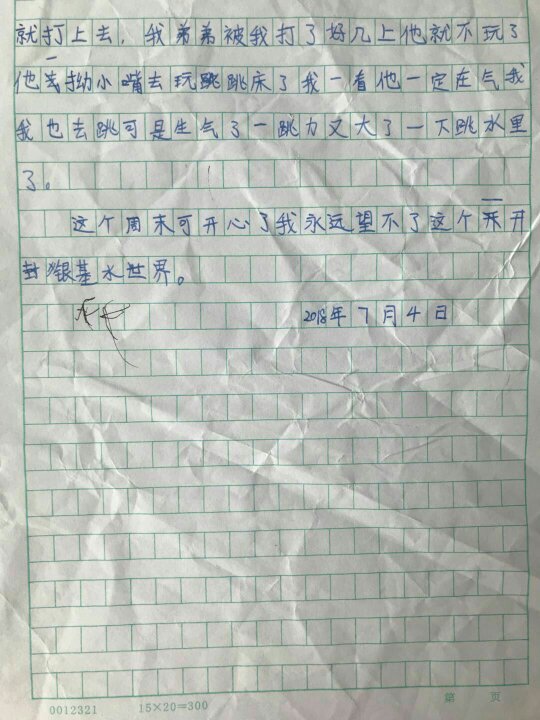 就打上去，我弟弟被我打了好几上他就不玩了
他拗小嘴去玩跳跳床了我一看他一定在气我
我也去跳可是生气了一跳力又大了一下跳水里
了。
这个周末可开心了我永远望不了这个开
封银基水世界。
2018年7月4日
0012321 15×20=300 第 页